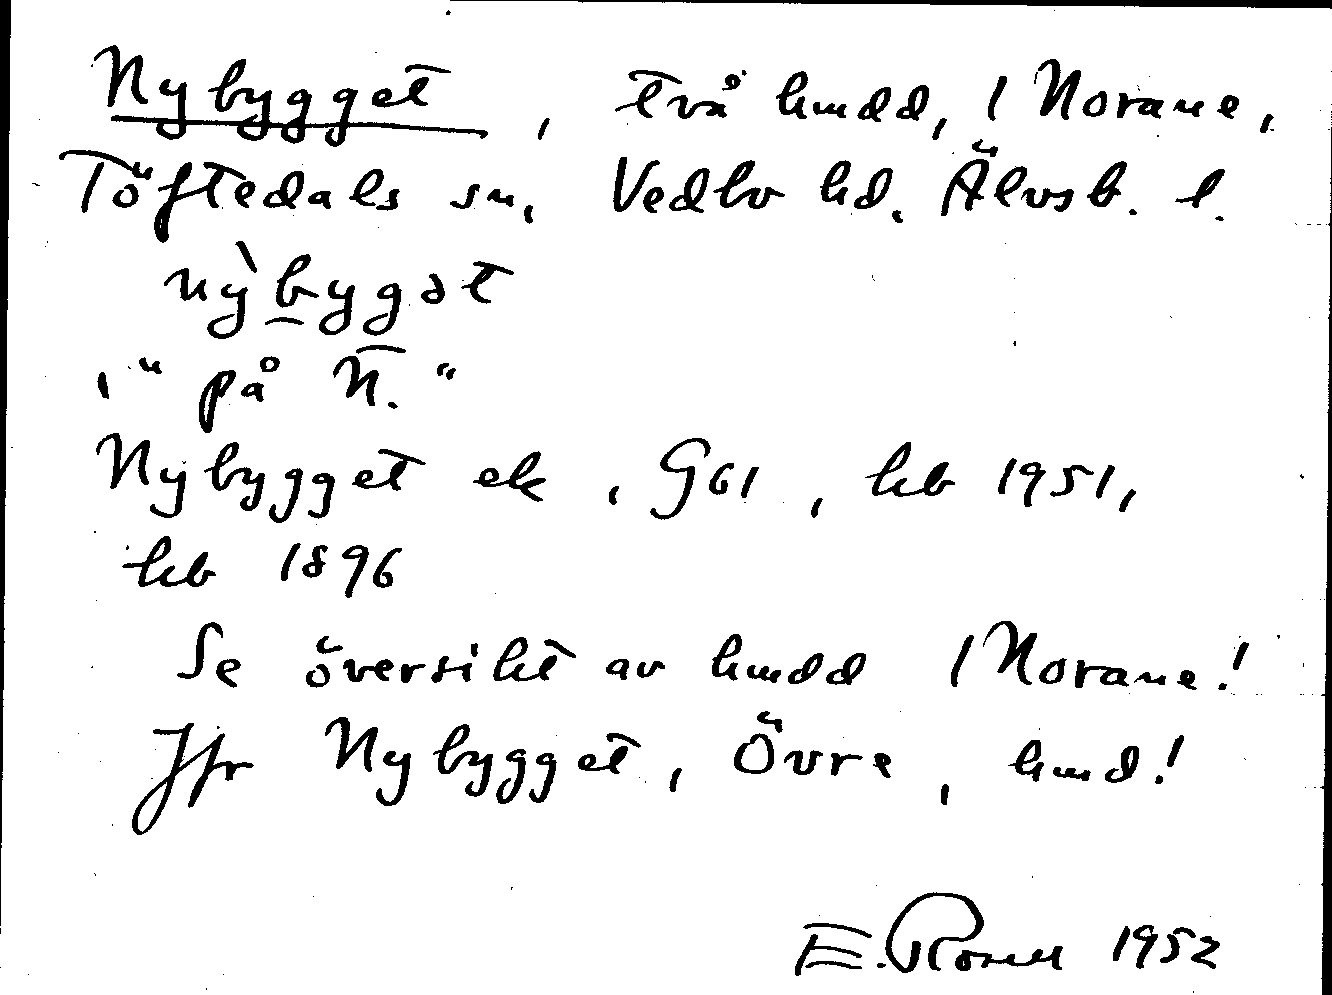 Nybygget, två hmdd, 1 Norane,
Töftedals sn, Vedbo hd. Älvsb. l.
nỳbygət
, "på N."
Nybygget ek, G61, hkb 1951,
hkb 1896
Se översikt av hmdd 1 Norane!
Jfr Nybygget, Övre, hmd!
E. 1952